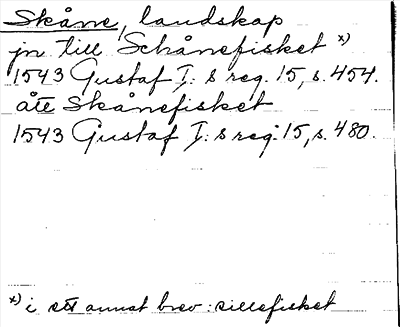 Skåne, landskap
jn till Schånefisket x)
1543 Gustaf I: s reg. 15, s. 454.
ått Skånefisket
1543 Gustaf I: s reg. 15, s. 480.
x) i ett annat brev: sillefisket